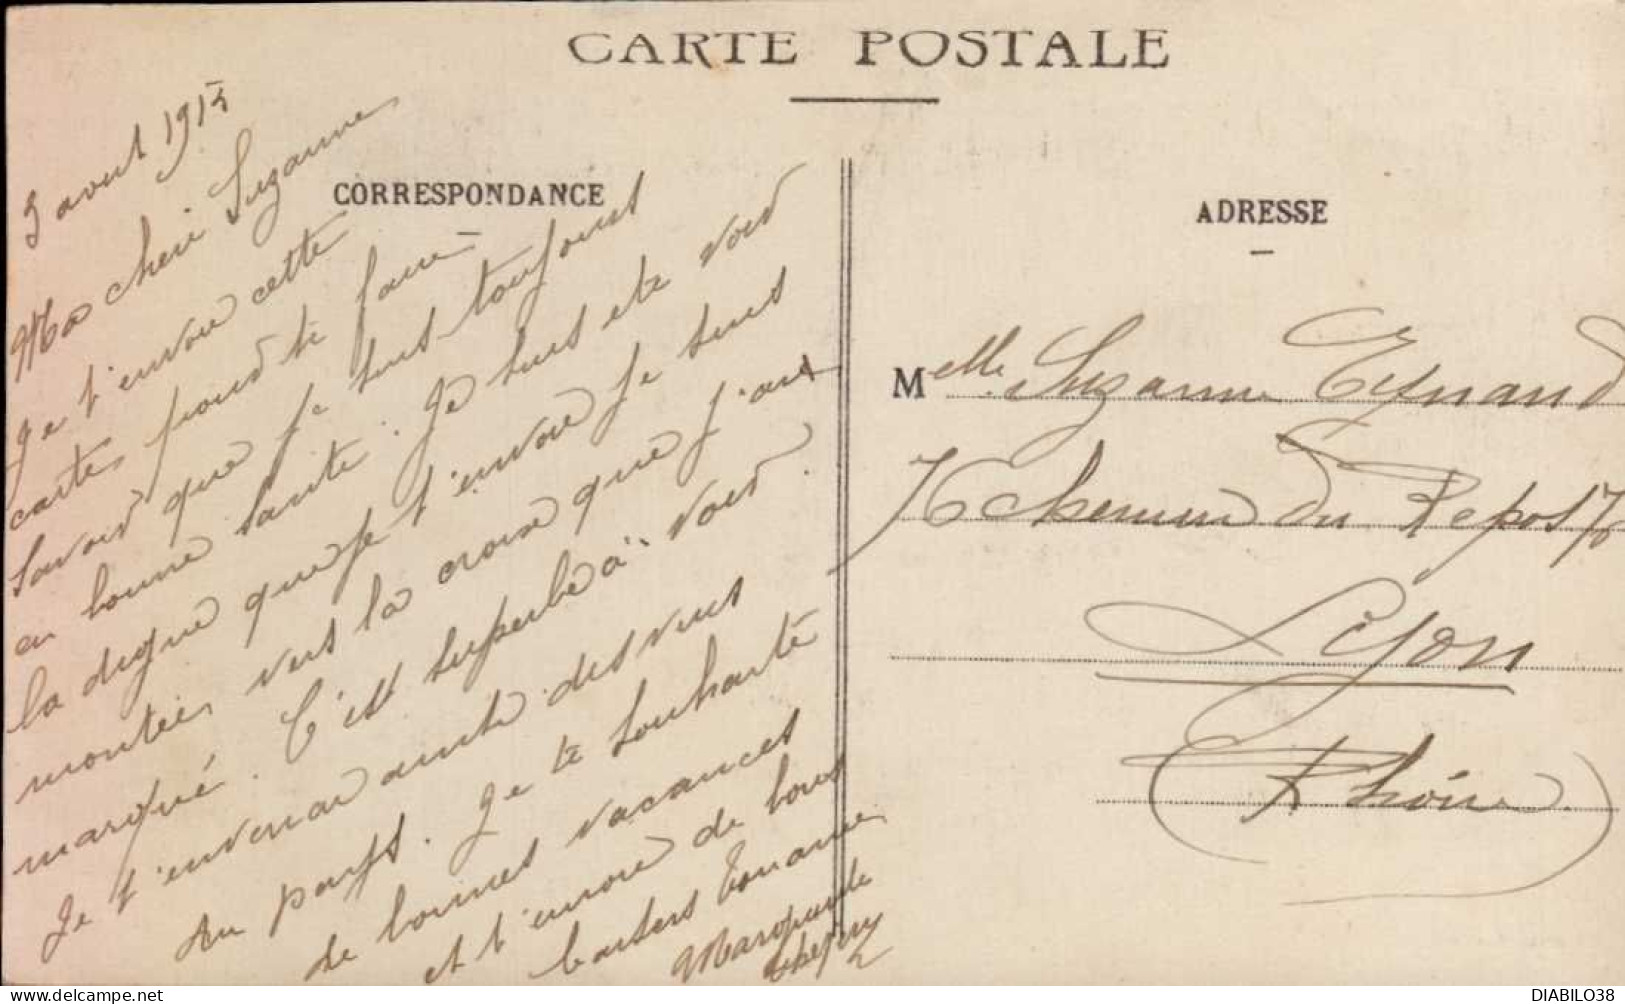 CARTE POSTALE
CORRESPONDANCE
ADRESSE
3 aout 1915
Ma cherie Suzanne
Je t'envoie cette
carte pour te faire
savoir que je suis toujours
en bonne santé. Je suis été voir
la digue que je t'envoie je suis
montée, vers la croix que j'ai
marqué. C'est superbe à voir.
Je t'enverrai ensuite des vues
du pays. Je te souhaite
de bonnes vacances
et t'envoie de bons
baisers
Marguerite
Melle Suzanne Eynard
76 chemin du Repos 76
Lyon
Rhône
DIABILO38